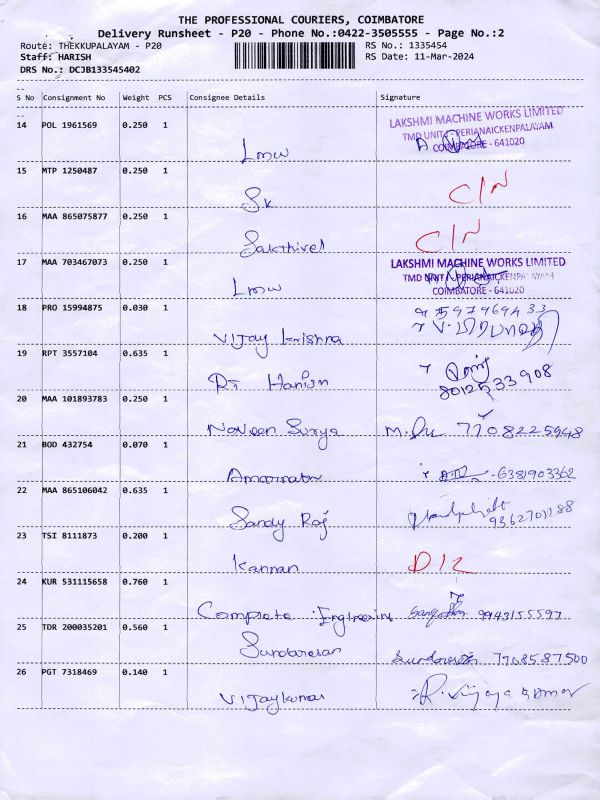 THE PROFESSIONAL COURIERS, COIMBATORE
Delivery Runsheet - P20 - Phone No.:0422-3505555 - Page No.:2
Route: THEKKUPALAYAM - P20 RS No.: 1335454
Staff: HARISH RS Date: 11-Mar-2024
DRS No.: DCJB133545402
S No Consignment No Weight PCS Consignee Details Signature
14 POL 1961569 0.250 1
LAKSHMI MACHINE WORKS LIMITED
TMD UNIT PERIANAICKENPALAYAM
COIMBATORE - 641020
Lmw
15 MTP 1250487 0.250 1
Sk C/N
16 MAA 865075877 0.250 1
Sakthivel C/N
17 MAA 703467073 0.250 1
LAKSHMI MACHINE WORKS LIMITED
TMD UNIT PERIANAICKENPALAYAM
COIMBATORE - 641020
Lmw
18 PRO 15994875 0.030 1
Vijay Krishna
19 RPT 3557104 0.635 1
Harish
20 MAA 101893783 0.250 1
Naveen Surya 7708225948
21 BOD 432754 0.070 1
6381903362
22 MAA 865106042 0.635 1
Sandy Raj
23 TSI 8111873 0.200 1
Kannan D/L
24 KUR 531115658 0.760 1
Complete Engineering 9943155597
25 TDR 200035201 0.560 1
Sundaresan 7708587500
26 PGT 7318469 0.140 1
Vijaykumar